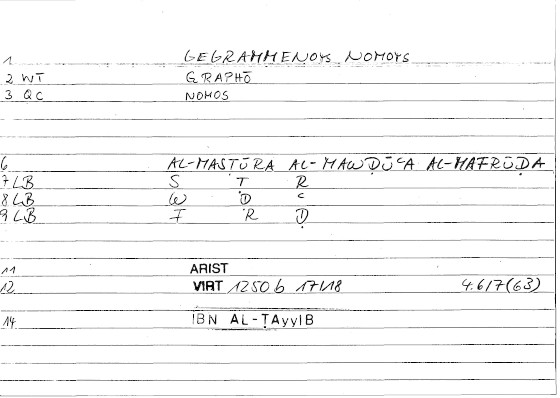 1 GEGRAMMENOYS NOMOYS
2 WT GRAPHŌ
3 QC NOMOS
6 AL-MASTŪRA AL-MAWḌŪʿA AL-MAFRŪḌA
7 LB S T R
8 LB W Ḍ ʿ
9 LB F R Ḍ
11 ARIST
12 VIRT 1250 b 17/18 4.6/7(63)
14 IBN AL-ṬAyyIB